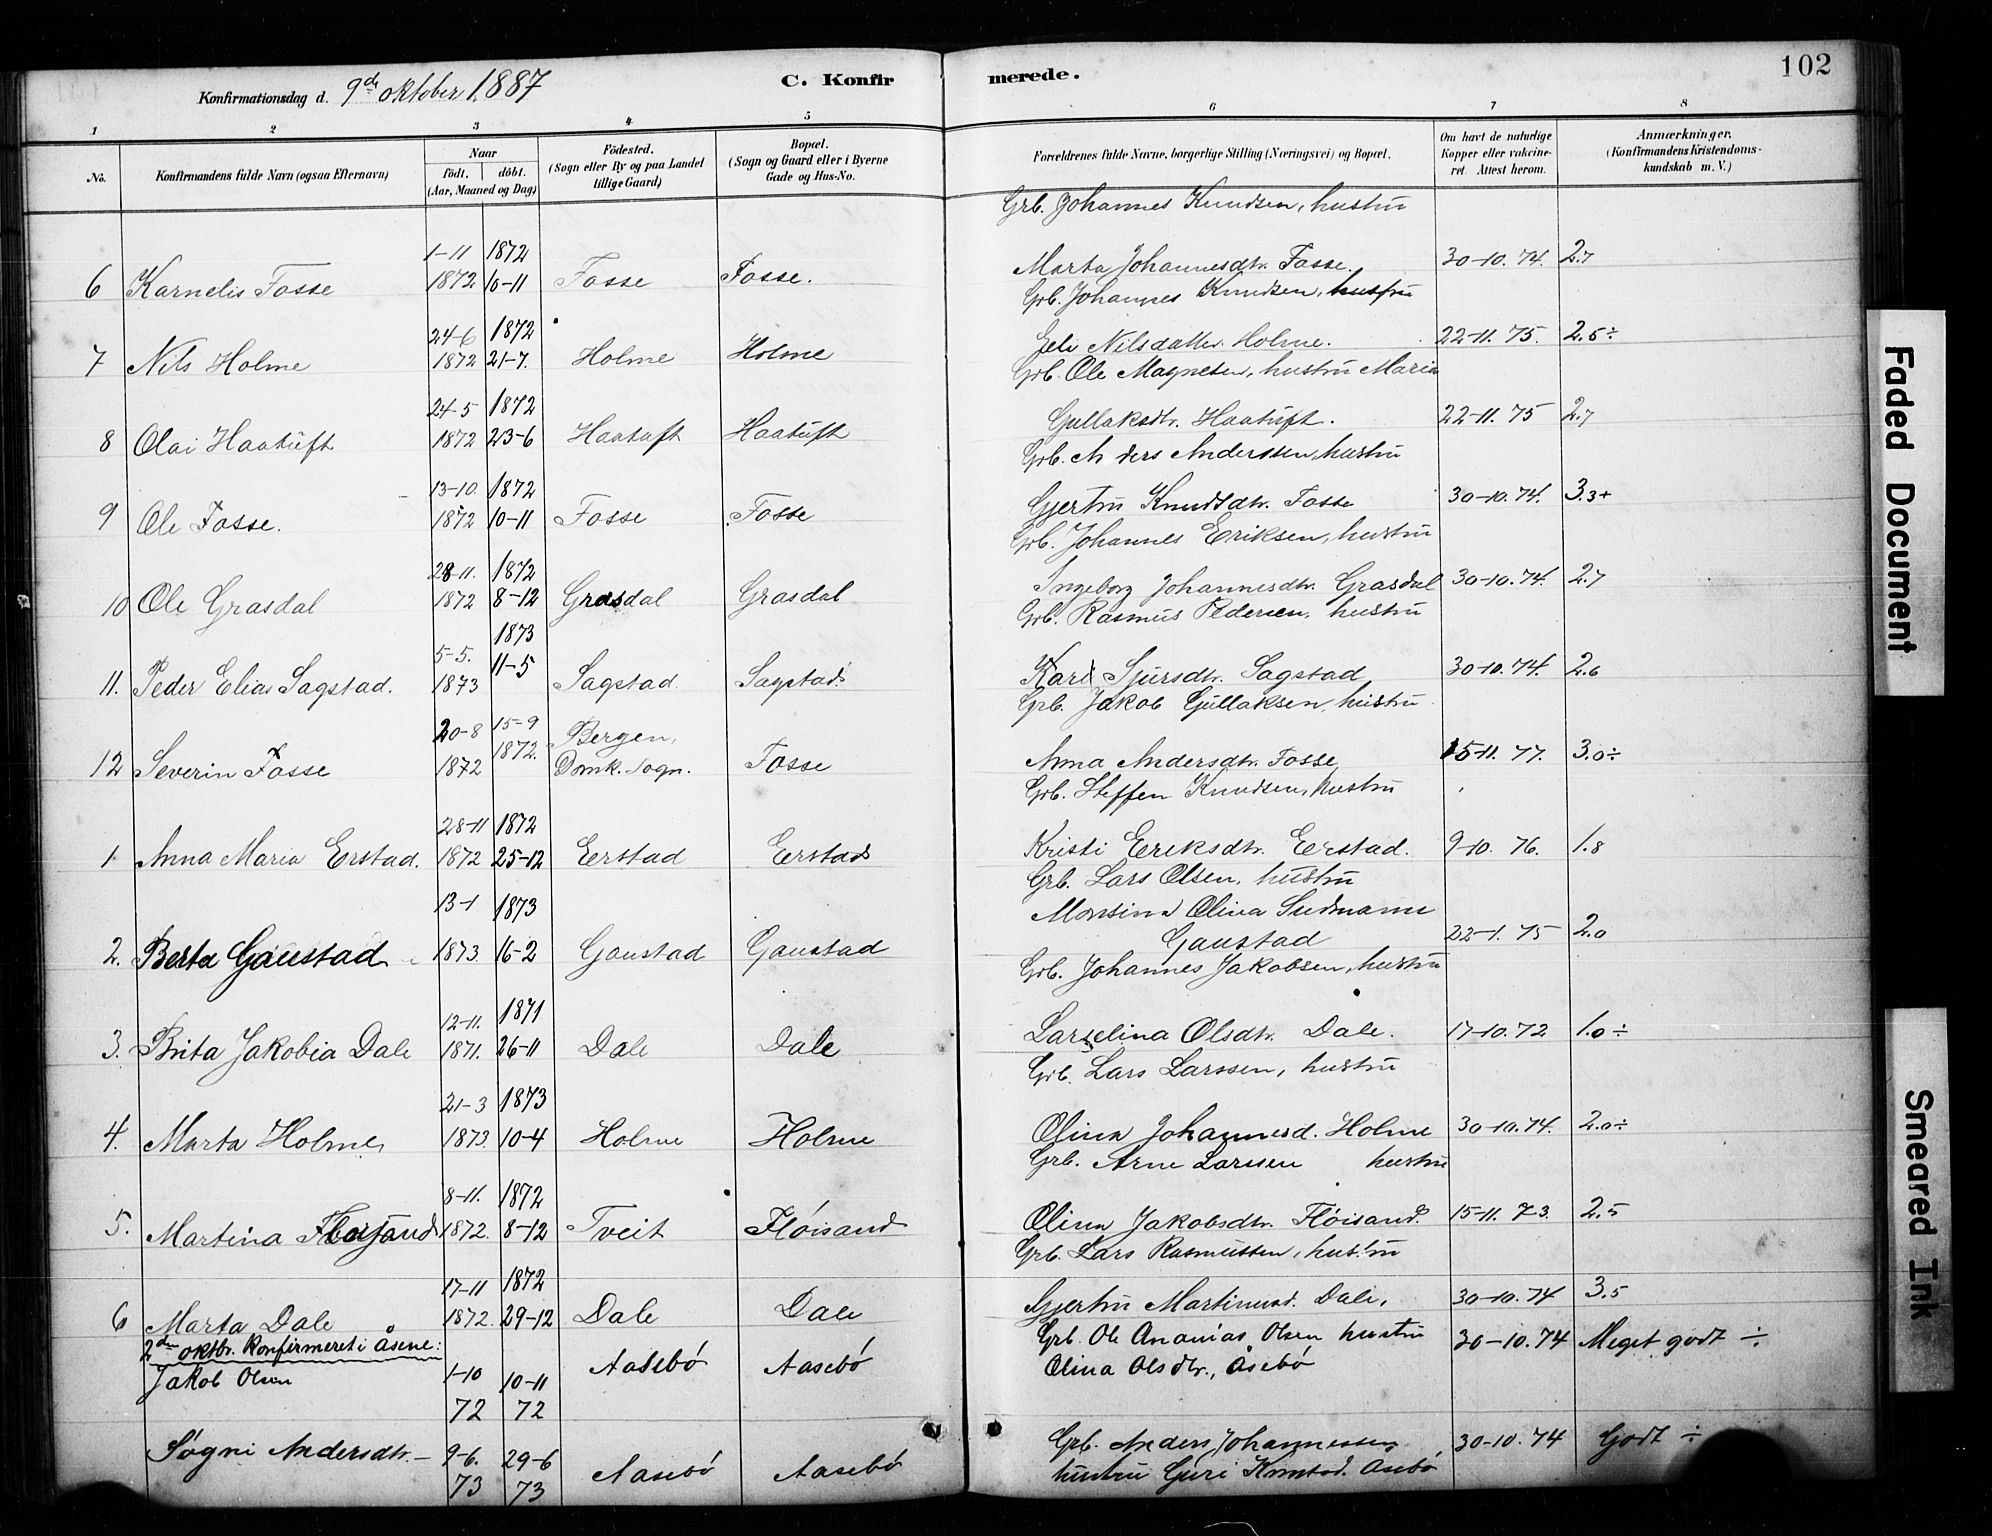 102
Konfirmationsdag d. 9de oktober 1887 C. Konfirmerede.
1 2 3 4 5 6 7 8
No. Konfirmandens fulde Navn (ogsaa Efternavn) Naar født. døbt. (Aar, Maaned og Dag) Fødested. (Sogn eller By og paa Landet tillige Gaard) Bopæl. (Sogn og Gaard eller i Byerne Gade og Hus-No. Forældrenes fulde Navne, borgerlige Stilling (Næringsvei) og Bopæl. Om havt de naturlige Kopper eller vakcineret. Attest herom. Anmærkninger. (Konfirmandens Kristendomskundskab m. V.)
Grb. Johannes Knudsen, hustru
1-11 1872 Marta Johannesdtr. Fosse. 30-10. 74. 2.7
6 Karnelis Fosse 1872 10-11 Fosse Fosse. Grb. Johannes Knudsen, hustru
24-6 1872 Eli Nilsdatter Holme. 22-11. 75. 2.5÷
7 Nils Holme 1872 21-7. Holme Holme Grb. Ole Magnesen, hustru Maria
24-5 1872 Gullaksdtr. Haatuft. 22-11. 75 2.7
8 Olai Haatuft 1872 23-6 Haatuft Haatuft Grb. Anders Anderssen, hustru
13-10. 1872 Gjertru Knudsdtr. Fosse 30-10. 74. 3.3+
9 Ole Fosse. 1872 10-11 Fosse Fosse Grb. Johannes Eriksen, hustru
28-11. 1872 Ingeborg Johannesdtr. Grasdal 30-10. 74. 2.7
10 Ole Grasdal 1872 8-12 Grasdal Grasdal Grb. Rasmus Pedersen, hustru
5-5. 1873 11-5 Kari Sjursdtr. Sagstad 30-10. 74. 2.6
11. Peder Elias Sagstad. 1873 Sagstad Sagstad Grb. Jakob Gullaksen, hustru
20-8 15-9 1872. Bergen, Anna Andersdtr. Fosse 15-11. 77. 3.0÷
12 Severin Fosse 1872 Domk. Sogn. Fosse Grb. Steffen Knudsen, hustru
28-11 1872 Kristi Eeriksdtr. Eerstad. 9-10. 76. 1.8
1. Anna Maria Erstad. 1872 25-12 Eerstad Eerstad Grb. Lars Olsen, hustru
13-1 1873 Monsina Olina Sudmanne
Gaustad 22-1. 75 2.0
2. Berta Gaustad 1873. 16-2 Gaustad Gaustad Grb. Johannes Jakobsen, hustru
12-11. 1871 Larselina Olsdtr. Dale. 17-10. 72 1.0÷
3. Brita Jakobia Dale 1871. 26-11 Dale Dale Grb. Lars Larssen, hustru
21-3 1873 Olina Johannesd. Holme 30-10. 74. 2.0÷
4. Marta Holme 1873. 10-4 Holme Holme Grb. Arne Larssen hustru
8-11. 1872 Olina Jakobsdtr. Fløisand. 15-11. 73. 2.5
5. Martina 1872. 8-12 Tveit Fløisand Grb. Lars Rasmussen, hustru
17-11 1872 Gjertru Martinusd. Dale. 30-10. 74 3.5
6 Marta Dale 1872. 29-12 Dale Dale
2den oktbr. konfirmeret i Åsene: Grb. Ole Ananias Olsen hustru 30-10. 74 Meget godt ÷
Jakob Olsen 1-10 72 10-11 72 Aasebø Aasebø Olina Olsdtr., Åsebø
Søgni Andersdtr. 9-6. 73 29-6 73 Aasebø Aasebø Grb. Anders Johannessen 30-10. 74 Godt ÷
hustru Guri Knutsd. Åsebø
Faded Document
Smeared Ink